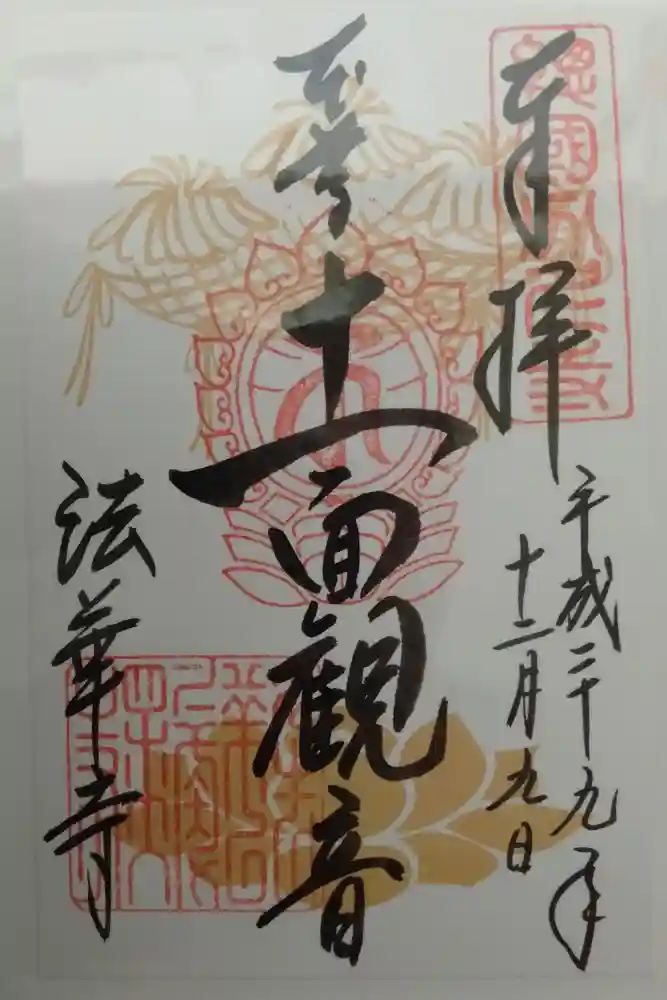 奉拝
平成二十九年
十二月九日
本尊
十一面観音
法華寺